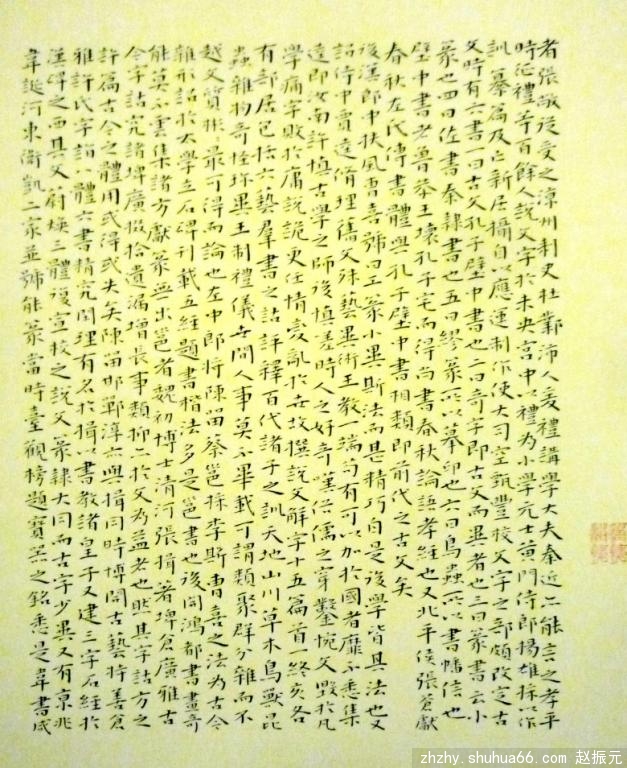 者張敞從受之涼州刺史杜鄴沛人爰禮講學大夫秦近亦能言之孝平
時徵禮等百餘人說文字於未央宮中以禮為小學元士黃門侍郎揚雄採以作
訓纂篇及亡新居攝自以應運制作使大司空甄豐校文字之部頗改定古
文時有六書一曰古文孔子壁中書也二曰奇字即古文而異者也三曰篆書云小
篆也四曰佐書秦隸書也五曰繆篆所以摹印也六曰鳥蟲所以書幡信也
壁中書者魯恭王壞孔子宅而得尚書春秋論語孝經也又北平侯張蒼獻
春秋左氏傳書體與孔子壁中書相類即前代之古文矣
後漢郎中扶風曹喜號曰工篆小異斯法而甚精巧自是後學皆其法也又
詔侍中賈逵脩理舊文殊藝異術王教一端苟有可以加於國者靡不悉集
逵即汝南許慎古學之師後慎嗟時人之好奇嘆俗儒之穿鑿惋文毀於凡
學痛字敗於庸說詭更任情變亂於世故撰說文解字十五篇首一終亥各
有部居包括六藝羣書之詁評釋百代諸子之訓天地山川草木鳥獸昆
蟲雜物奇怪珍異王制禮儀世間人事莫不畢載可謂類聚群分雜而不
越文質彬彬最可得而論也左中郎將陳留蔡邕採李斯曹喜之法為古今
雜形詔於太學立石碑刊載五經題書楷法多是邕書也後開鴻都書畫奇
能莫不雲集諸方獻篆無出邕者魏初博士清河張揖著埤倉廣雅古
今字詁究諸埤廣掇拾遺漏增長事類抑亦於文為益者也然其字詁方之
許篇古今之體用或得或失矣陳留邯鄲淳亦與揖同時博開古藝特善倉
雅許氏字詣八體六書精究閑理有名於揖以書教諸皇子又建三字石經於
漢碑之西其文蔚煥三體復宣校之說文篆隸大同而古字少異又有京兆
韋誕河東衛覬二家並號能篆當時臺觀榜題寶器之銘悉是韋書咸
zhzhy.shuhua66.com 赵振元